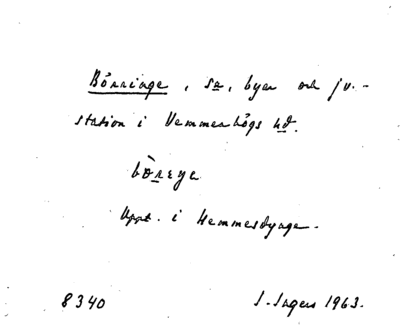 Börringe, sn, byar och jv.-
station i Vemmenhögs hd.
bòreya
Uppt. i Hemmesdynge.
8340 I. Ingers 1963.